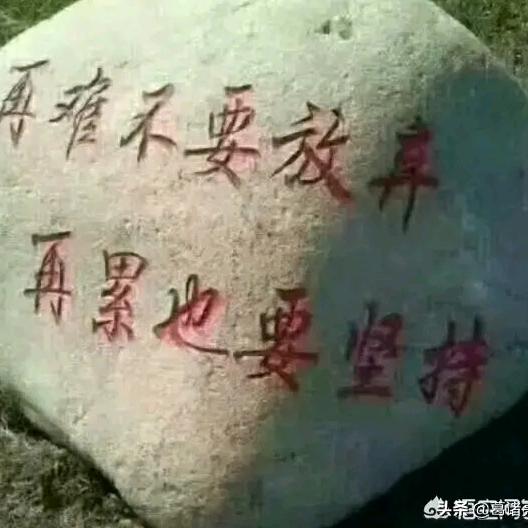 再难不要放弃
再累也要坚持
头条